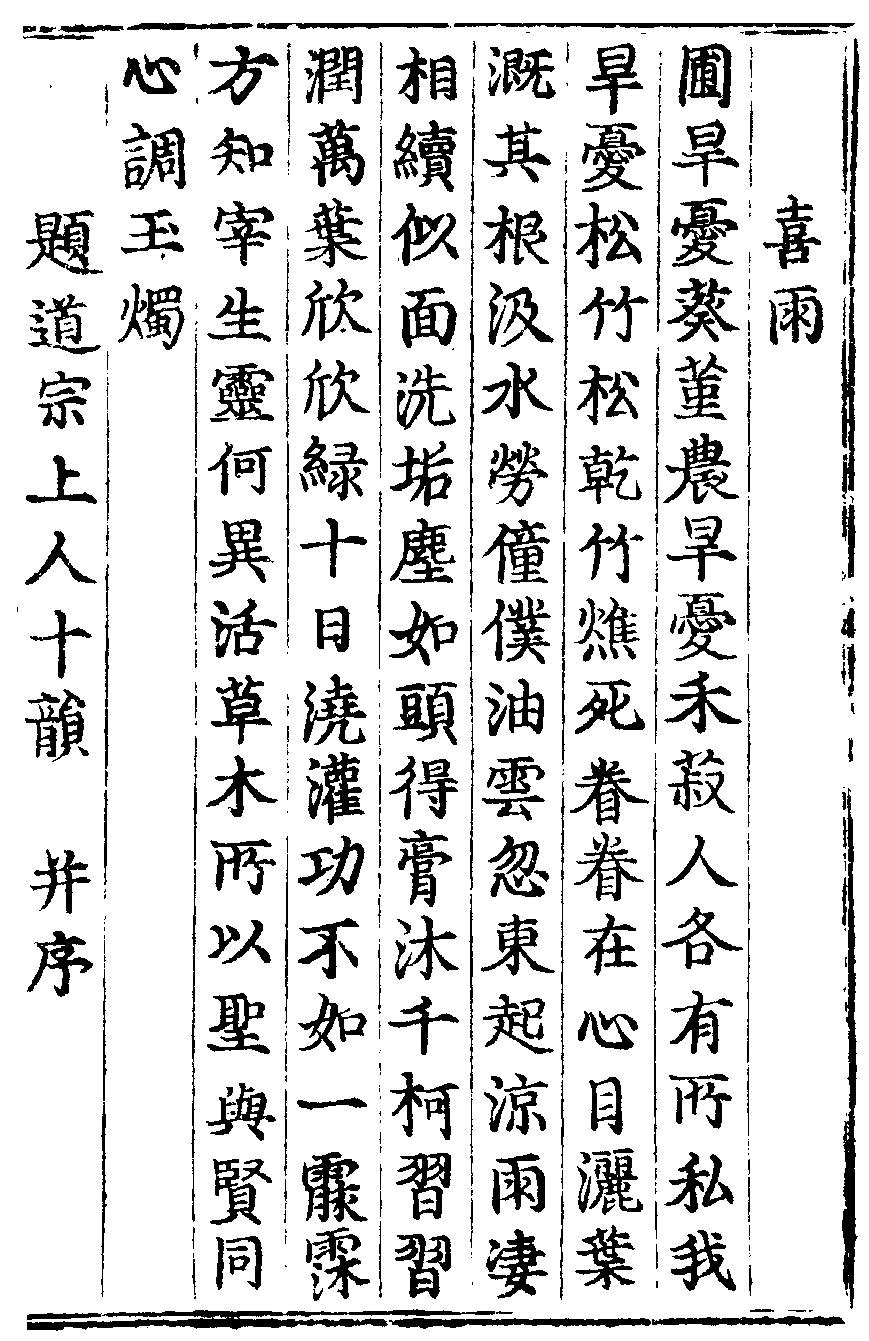 喜雨
圃旱憂葵菫農旱憂禾菽人各有所私我
旱憂松竹松乾竹燋死眷眷在心目灑葉
溉其根汲水勞僮僕油雲忽東起涼雨淒
相續似面洗垢塵如頭得膏沐千柯習習
潤萬葉欣欣緑十日澆灌功不如一霡霂
方知宰生靈何異活草木所以聖與賢同
心調玉燭
題道宗上人十韻 并序